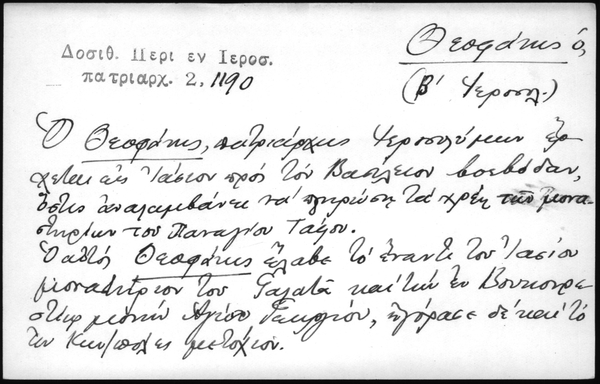 Δοσιθ. Περι εν Ιεροσ.
πατριαρχ. 2, 1190
Θεοφάνης ὁ,
(Β' Ἱεροσολ.)
Ὁ Θεοφάνης, πατριάρχης Ἱεροσολύμων ἔρ-
χεται εἰς Ἰάσιον πρὸς τὸν Βασίλειον βοεβόδαν,
ὅστις ἀναλαμβάνει νὰ πληρώσῃ τὰ χρέη τῶν μονα-
στηρίων τοῦ Παναγίου Τάφου.
Ὁ αὐτὸς Θεοφάνης ἔλαβε τὸ ἔναντι τοῦ Ἰασίου
μοναστήριον τοῦ Γαλατᾶ καὶ τὴν ἐν Βουκουρε-
στίῳ μονὴν Ἁγίου Γεωργίου, ἠγόρασε δὲ καὶ τὸ
τῆς Κων/πόλεως μετόχιον.